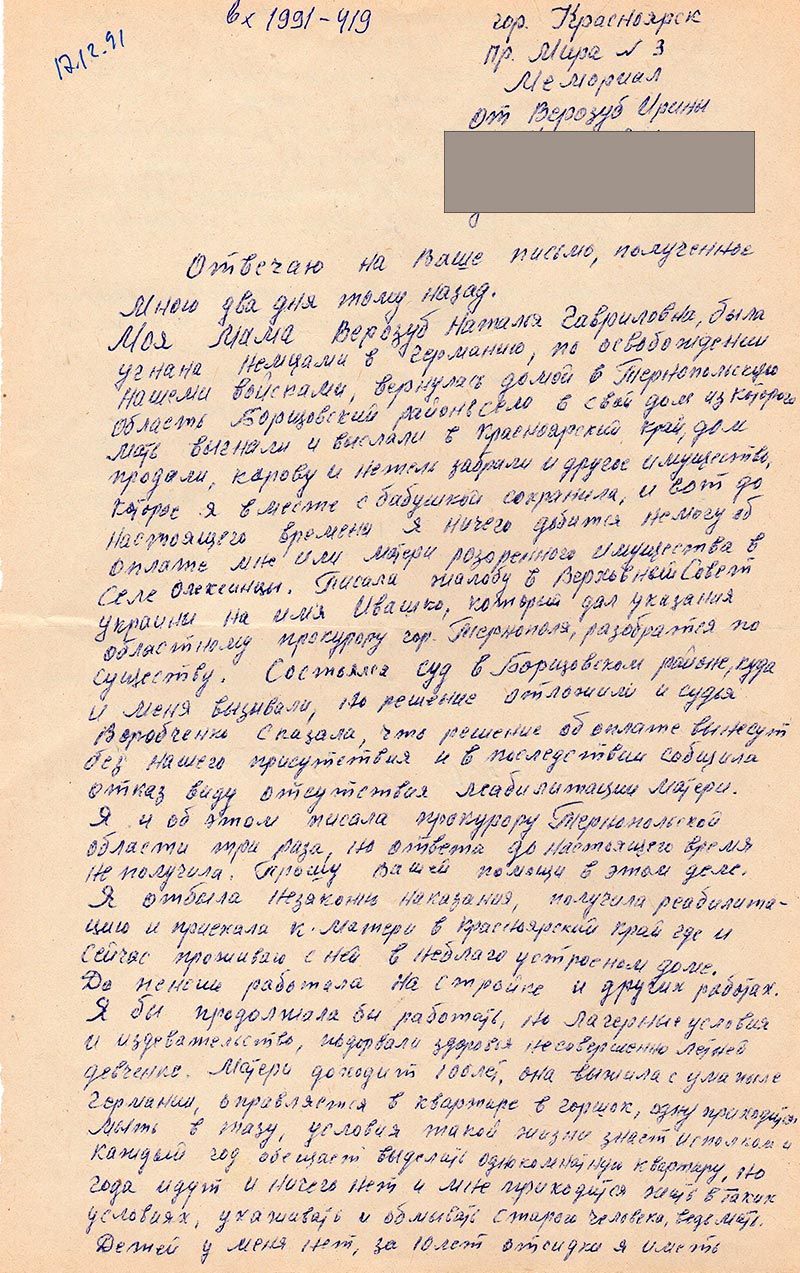 вх 1991-419
17.12.91
гор. Красноярск
пр. Мира N 3
Мемориал
От Верозуб Ирины
Отвечаю на Ваше письмо, полученное
мною два дня тому назад.
Моя мама Верозуб Наталья Гавриловна, была
угнана немцами в Германию, по освобождении
нашеми войсками, вернулась домой в Тернопольскую
область Борщовский район село в свой дом из которого
мать выгнали и выслали в Красноярский край, дом
продали, карову и нетель забрали и другое имущество,
которое я вместе с бабушкой сохранила, и вот до
настоящего времени я ничего добится немогу об
оплате мне или матери разоренного имущества в
селе Олексинцы. Писала жалобу в Верховный Совет
Украини на имя Ивашко, который дал указания
областному прокурору гор. Тернополя, разобратся по
существу. Состоялся суд в Борщовском районе, куда
и меня вызывали, но решение отложили и судья
Воробченко сказала, что решение об оплате вынесут
без нашего присутствия и в последствии собщила
отказ виду отсутствия реабилитации матери.
Я и об этом писала прокурору Тернопольской
области три раза, но ответа до настоящего время
не получила. Прошу Вашей помощи в этом деле.
Я отбыла незаконн наказания, получила реабилита-
цию и приехала к матери в Красноярский край где и
сейчас проживаю с ней в неблагоустроеном доме.
До пенсии работала на стройке и других работах.
Я бы продолжала бы работать, но лагерные условия
и издевательство, подорвали здоровья несовершенно летней
девченке. Матери доходит 100 лет, она выжила с ума после
Германии, оправляется в квартире в горшок, одну приходится
мыть в тазу, условия такой жизни знает исполком и
каждый год обещает выделить однокомнатную квартиру, но
года идут и ничего нет и мне приходится жить в таких
условиях, ухаживать и обмывать старого человека, ведь мать.
Детей у меня нет, за 10 лет отсидки я иметь